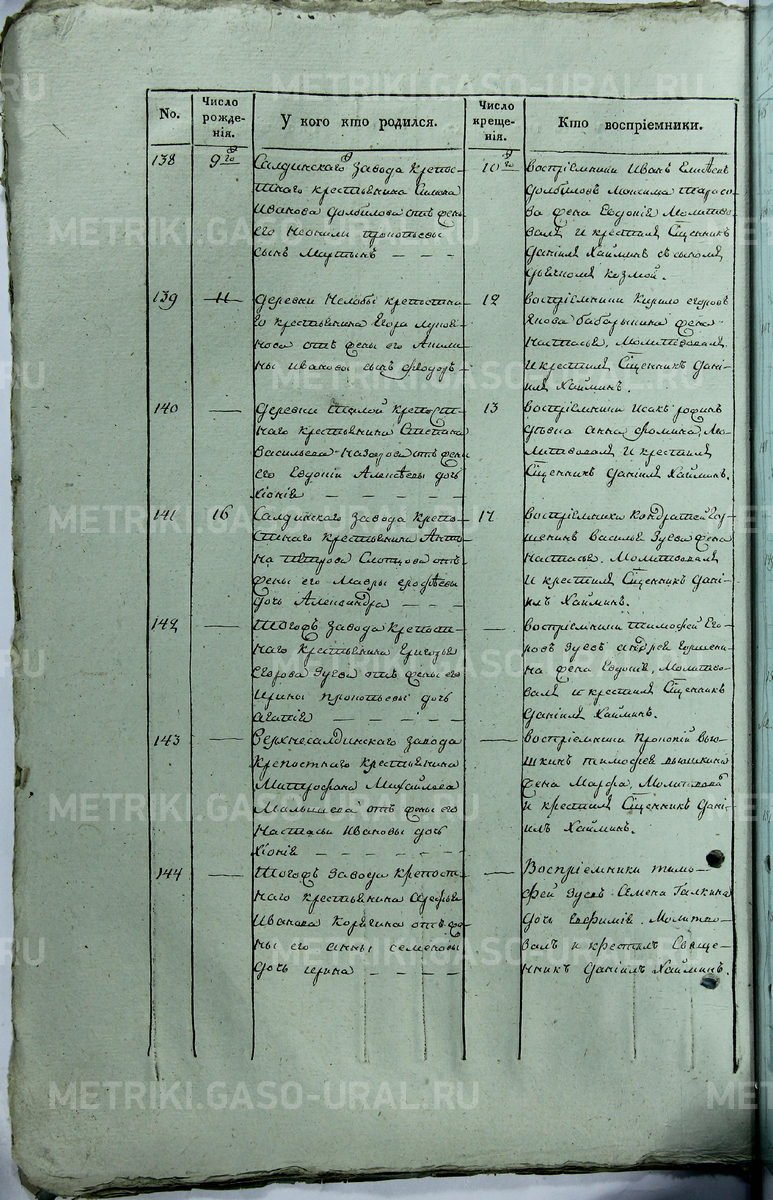 METRIKI.GASO-URAL.RU
No.
Число рожде-нія.
У кого кто родился.
Число креще-нія.
Кто воспріемники.
138
9го
Салдинскаго завода крепос-
тнаго крестьянина Симона
Иванова Долбилова отъ жены
его Неонилы Прокопьевы
сынъ Мартынъ — — —
10го
воспріемники Иванъ
Долбиловъ Максима Тарасо-
ва жена Евдокія Молитво-
валъ и крестилъ Сщенникъ
Даніилъ Хайминъ съ сыномъ
дьячкомъ Козмой.
139
11
деревни Нелобы крепостна-
го крестьянина Егора
отъ жены его Акили-
ны Ивановы сынъ Феодоръ —
12
воспріемники Кирило Егоровъ
Якова Бабарыкина жена
Настасья, Молитвовалъ
и крестилъ Сщенникъ Дані-
илъ Хайминъ.
140
—
деревни крепост-
наго крестьянина Степана
Васильева Назарова отъ жены
его Евдокіи Алексѣевы дочь
Хіонія — — — —
13
воспріемники Исакъ
Анна Фомина, Мо-
литвовалъ и крестилъ
Сщенникъ Даніилъ Хайминъ.
141
16
Салдинскаго завода крепо-
стнаго крестьянина Анти-
па Петрова Слопцова отъ
жены его Мавры Ерофѣевы
дочь Александра — — —
17
воспріемники Кондратей Гор-
шенинъ Василья Зуева жена
Настасья. Молитвовалъ
и крестилъ Сщенникъ Дані-
илъ Хайминъ.
142
—
Тогожъ завода крепост-
наго крестьянина Григорья
Егорова Зуева отъ жены его
Ирины Прокопьевы дочь
Агапія — — — —
—
воспріемники Тимофей Его-
ровъ Зуевъ Андрея Горшени-
на жена Евдокія, Молитво-
валъ и крестилъ Сщенникъ
Даніилъ Хайминъ.
143
—
Верхнесалдинскаго завода
Крепостнаго крестьянина
Митрофана Михайлова
Малышева отъ жены его
Настасьи Ивановы дочь
Хіонія — — — —
—
воспріемники Прокопій Вью-
шкинъ Тимофея Вьюшкина
жена Марфа, Молитвовалъ
и крестилъ Сщенникъ Дані-
илъ Хайминъ.
144
—
Тогожъ завода крепост-
наго крестьянина
Иванова Корягина отъ же-
ны его Анны Семеновы
дочь Ирина — — — —
—
Воспріемники Тимо-
фей Зуевъ Семена Галкина
дочь Евфимія. Молитво-
валъ и крестилъ Свяще-
нникъ Даніилъ Хайминъ.